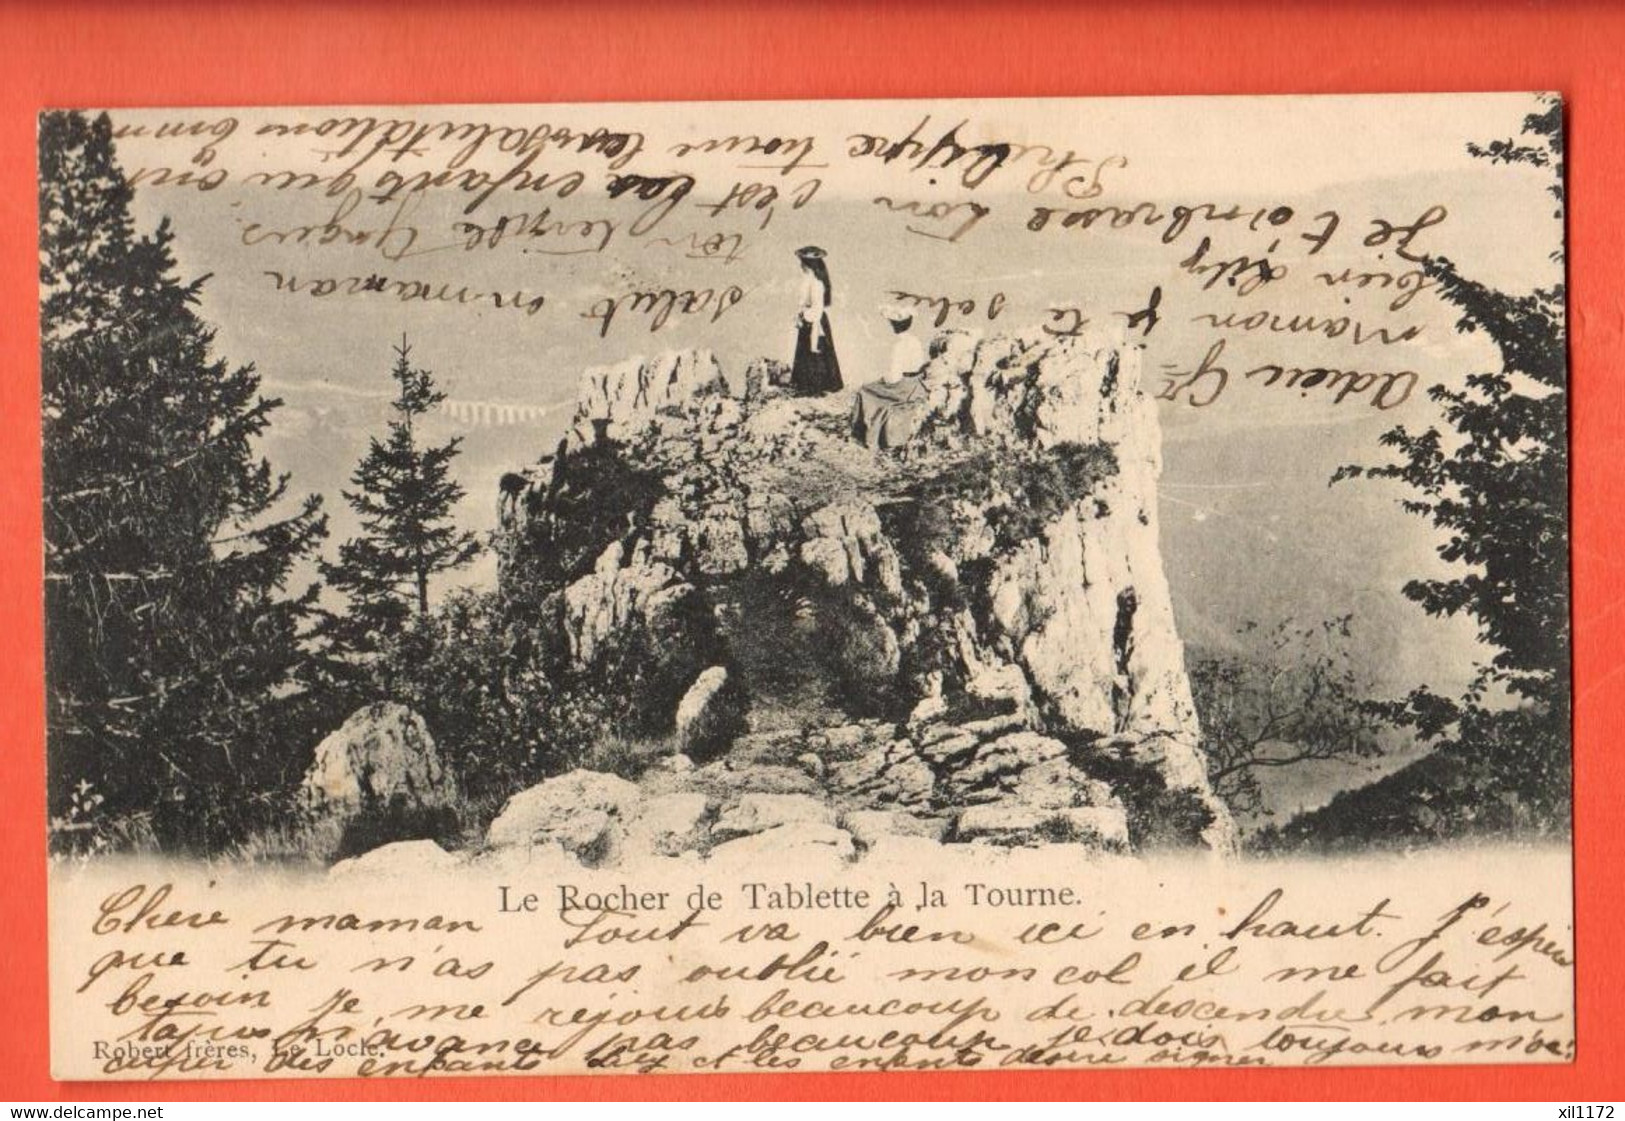 Le Rocher de Tablette à la Tourne.
Chère maman Tout va bien ici en haut. J'espère
que tu n'as pas oublié mon col il me fait
besoin je me réjouis beaucoup de descendre mon
tapis n'avance pas beaucoup je dois toujours m'oc
cuper des enfants Lily et les enfants désire signer
Robert frères, Le Locle.
Adrien
maman je te
bien Lily
Je t'embrasse ton
Philippe
salut on maman
ton
c'est les enfants qui ont
les salutations
www.delcampe.net
xil1172